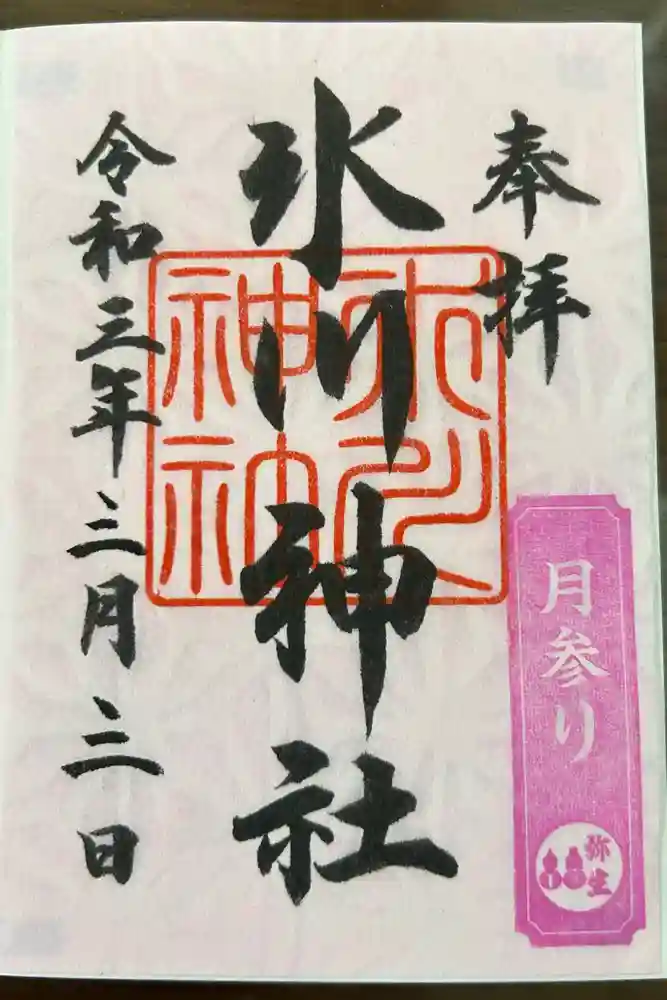 奉拝
月参り
弥生
氷川神社
氷川
神社
令和三年三月三日